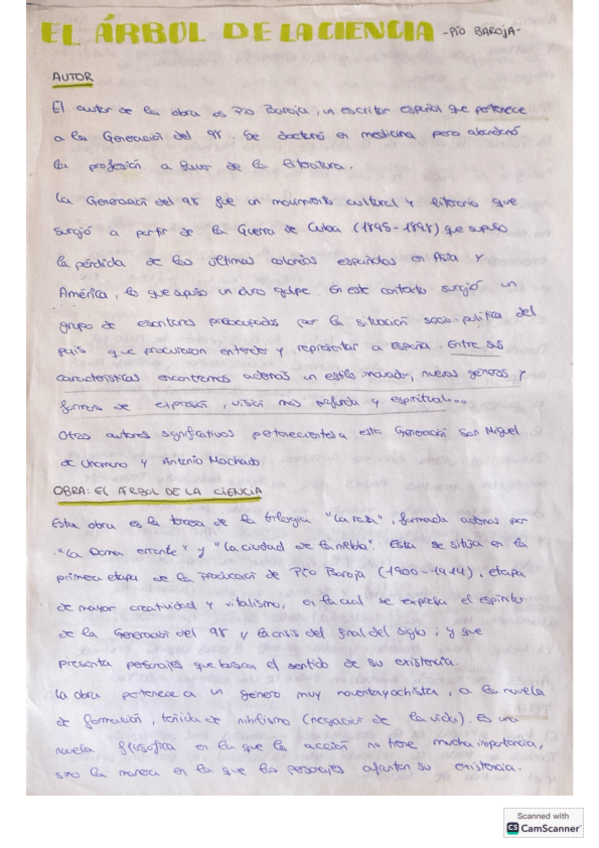 EL ÁRBOL DE LA CIENCIA -PÍO BAROJA-
AUTOR
El autor de la obra es Pío Baroja, un escritor español que pertenece
a la Generación del 98. Se doctoró en medicina pero abandonó
la profesión a favor de la literatura.
La Generación del 98 fue un movimiento cultural y literario que
surgió a partir de la Guerra de Cuba (1895-1898) que supuso
la pérdida de las últimas colonias españolas en Asia y
América, lo que supuso un duro golpe. En este contexto surgió un
grupo de escritores preocupados por la situación socio-política del
país que procuraron entender y representar a España. Entre sus
características encontramos además un estilo innovador, nuevos géneros y
formas de expresión, visión más profunda y espiritual...
Otros autores significativos pertenecientes a esta Generación son Miguel
de Unamuno y Antonio Machado.
OBRA: EL ÁRBOL DE LA CIENCIA
Esta obra es la tercera de la trilogía "La raza", formada además por
"La Dama errante" y "La ciudad de la niebla". Esta se sitúa en la
primera etapa de la producción de Pío Baroja (1900-1914), etapa
de mayor creatividad y vitalismo, en la cual se expresa el espíritu
de la Generación del 98 y la crisis del final del siglo; y que
presenta personajes que buscan el sentido de su existencia.
La obra pertenece a un género muy noventayochista, a la novela
de formación, teñida de nihilismo (negación de la vida). Es una
novela filosófica en la que la acción no tiene mucha importancia,
sino la manera en la que los personajes afrontan su existencia.
Scanned with
CS CamScanner